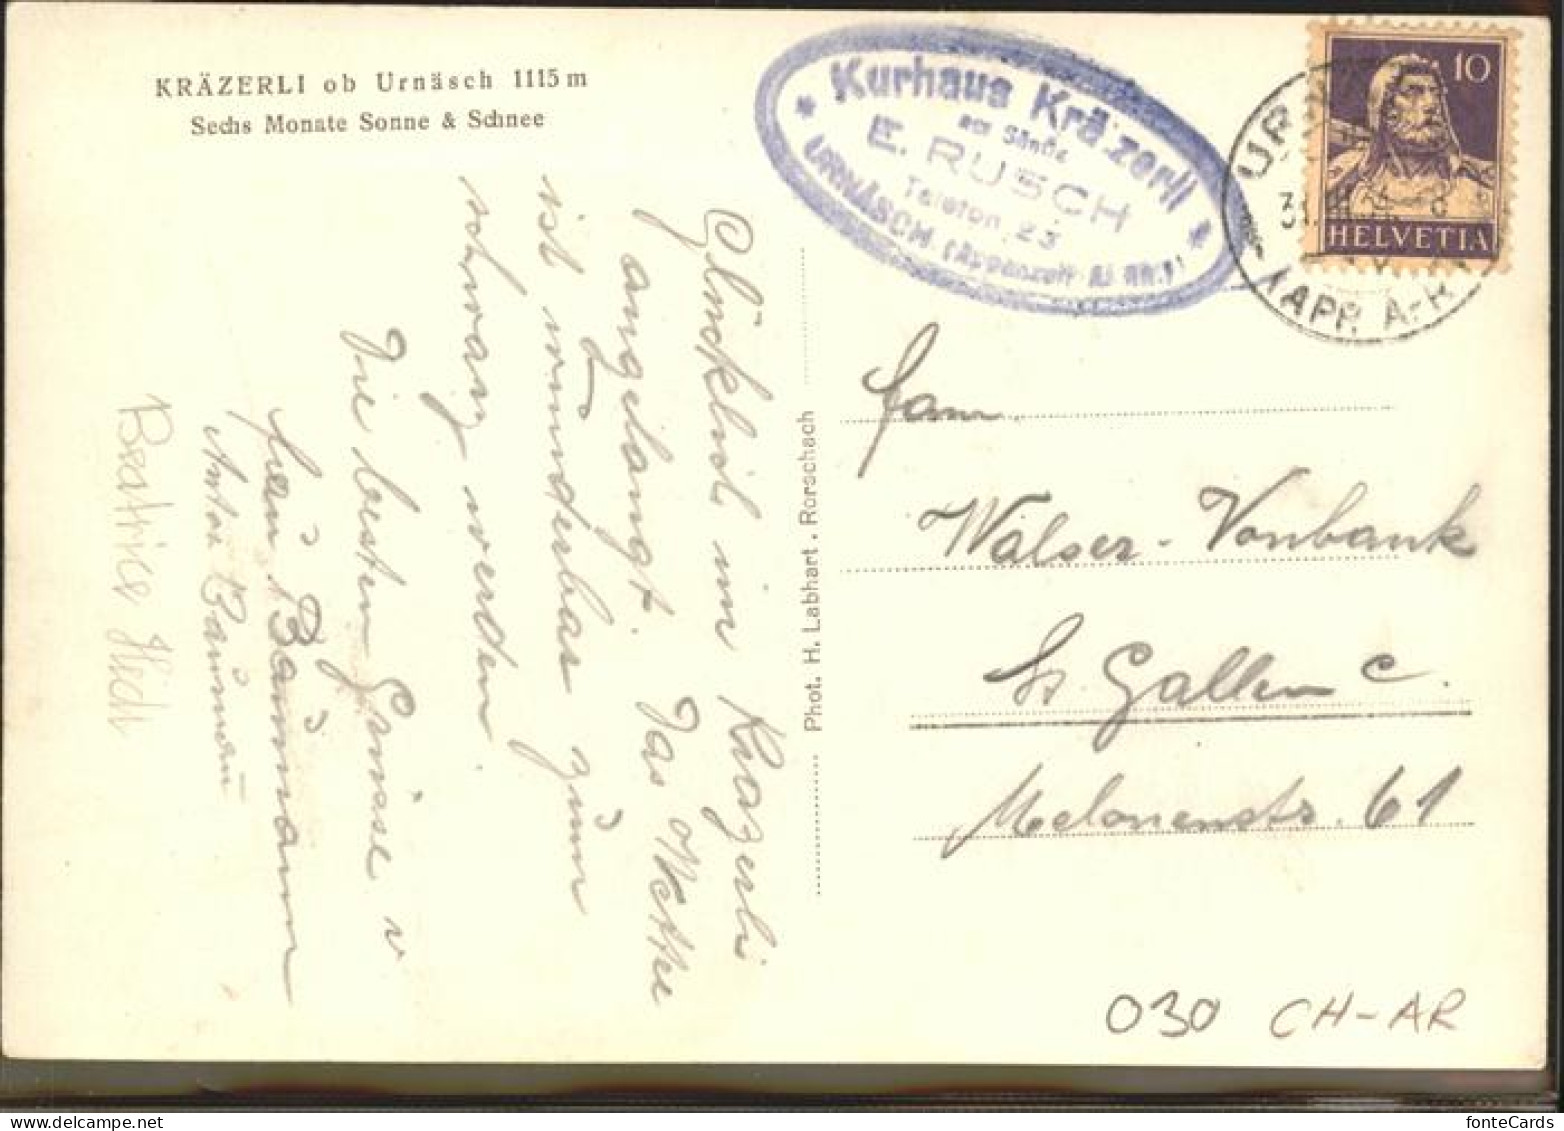 KRÄZERLI ob Urnäsch 1115 m
Sechs Monate Sonne & Schnee
Kurhaus Kräzerli
am Säntis
E. RUSCH
Telefon 23
URNÄSCH (Appenzell A. Rh.)
10
HELVETIA
31.
(APP. A-R
Glücklich im Krazerli
angelangt. Das Wetter
ist wunderbar zum
schwarz werden.
Die besten Grüsse v
Bäumann
Beatrice Hedi
Phot. H. Labhart. Rorschach
Fam
Walser-Vonbank
St. Gallen C.
Melonenstr. 61
030 CH-AR
fonteCards